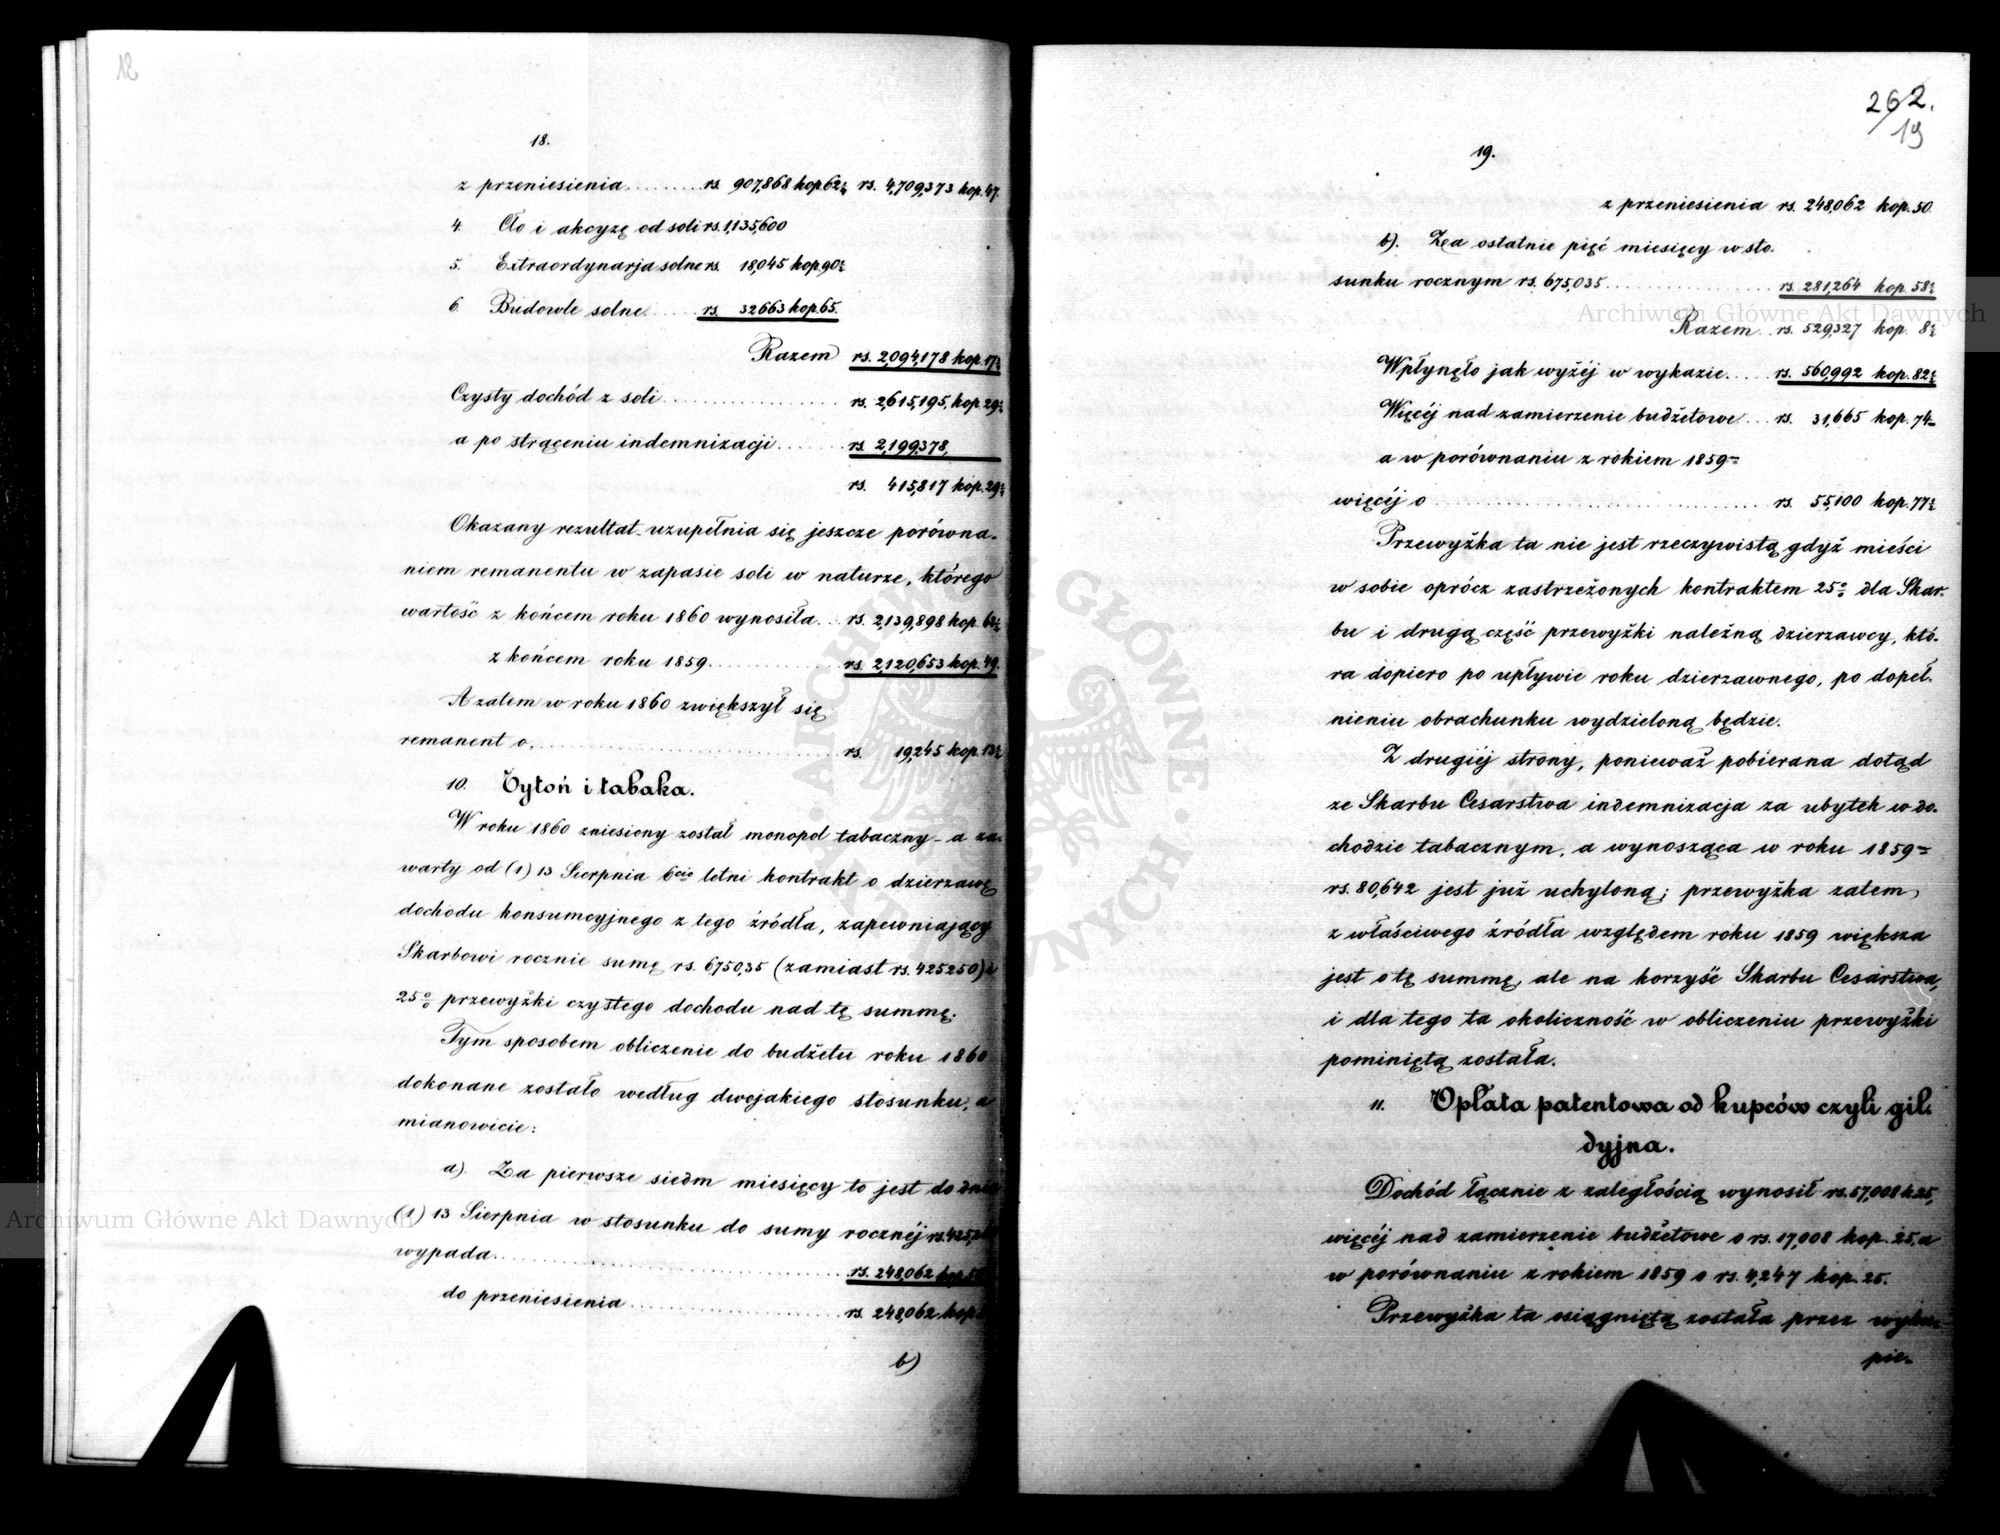 18
18.
z przeniesienia ........ rs. 907,868 kop. 62½ rs. 4,709,373 kop. 47.
4. Cło i akcyzę od soli rs. 1,135,600
5. Extraordynarja solne rs. 18,045 kop. 90½
6. Budowle solne ..... rs. 32663 kop. 65.
Razem rs. 2,094,178 kop. 17½
Czysty dochód z soli .......... rs. 2,615,195, kop. 29½
a po strąceniu indemnizacji ...... rs. 2,199,378,
rs. 415,817 kop. 29½
Okazany rezultat uzupełnia się jeszcze porówna-
niem remanentu w zapasie soli w naturze, którego
wartość z końcem roku 1860 wynosiła .. rs. 2,139,898 kop. 62½
z końcem roku 1859 .......... rs. 2,120,653 kop. 49.
A zatem w roku 1860 zwiększył się
remanent o .......... rs. 19,245 kop. 13½
10. Tytoń i tabaka.
W roku 1860 zniesiony został monopol tabaczny - a za-
warty od (1) 13 Sierpnia 6cio letni kontrakt o dzierżawę
dochodu konsumcyjnego z tego źródła, zapewniający
Skarbowi rocznie sumę rs. 675,035 (zamiast rs. 425250) i
25% przewyżki czystego dochodu nad tę summę.
Tym sposobem obliczenie do budżetu roku 1860
dokonane zostało według dwojakiego stosunku, a
mianowicie:
a). Za pierwsze siedm miesięcy to jest do dnia
(1) 13 Sierpnia w stosunku do sumy rocznéj rs. 425,
wypada .......... rs. 248,062 kop. 50
do przeniesienia .......... rs. 248,062 kop.
b)
262.
19
19.
z przeniesienia rs. 248,062 kop. 50.
b). Za ostatnie pięć miesięcy w sto-
sunku rocznym rs. 675,035 .......... rs. 281,264 kop. 58½
Razem .. rs. 529,327 kop. 8½
Wpłynęło jak wyżéj w wykazie .... rs. 560,992 kop. 82½
Więcéj nad zamierzenie budżetowe ... rs. 31,665 kop. 74
a w porównaniu z rokiem 1859
więcéj o .......... rs. 55,100 kop. 77½
Przewyżka ta nie jest rzeczywistą gdyż mieści
w sobie oprócz zastrzeżonych kontraktem 25% dla Skar-
bu i drugą część przewyżki należną dzierzawcy, któ-
ra dopiero po upływie roku dzierzawnego, po dopeł-
nieniu obrachunku wydzieloną będzie.
Z drugiéj strony, ponieważ pobierana dotąd
ze Skarbu Cesarstwa indemnizacja za ubytek w do-
chodzie tabacznym, a wynosząca w roku 1859
rs. 80,642 jest już uchyloną; przewyżka zatem,
z właściwego źródła względem roku 1859 większa
jest o tę summę, ale na korzyść Skarbu Cesarstwa,
i dla tego ta okoliczność w obliczeniu przewyżki
pominiętą została.
11. Opłata patentowa od kupców czyli gil-
dyjna.
Dochód łącznie z zaległością wynosił rs. 57,008 k. 25,
więcéj nad zamierzenie budżetowe o rs. 17,008 kop. 25, a
w porównaniu z rokiem 1859 o rs. 4,247 kop. 25.
Przewyżka ta osiągniętą została przez wyku-
pie-
Archiwum Główne Akt Dawnych
Archiwum Główne Akt Dawnych